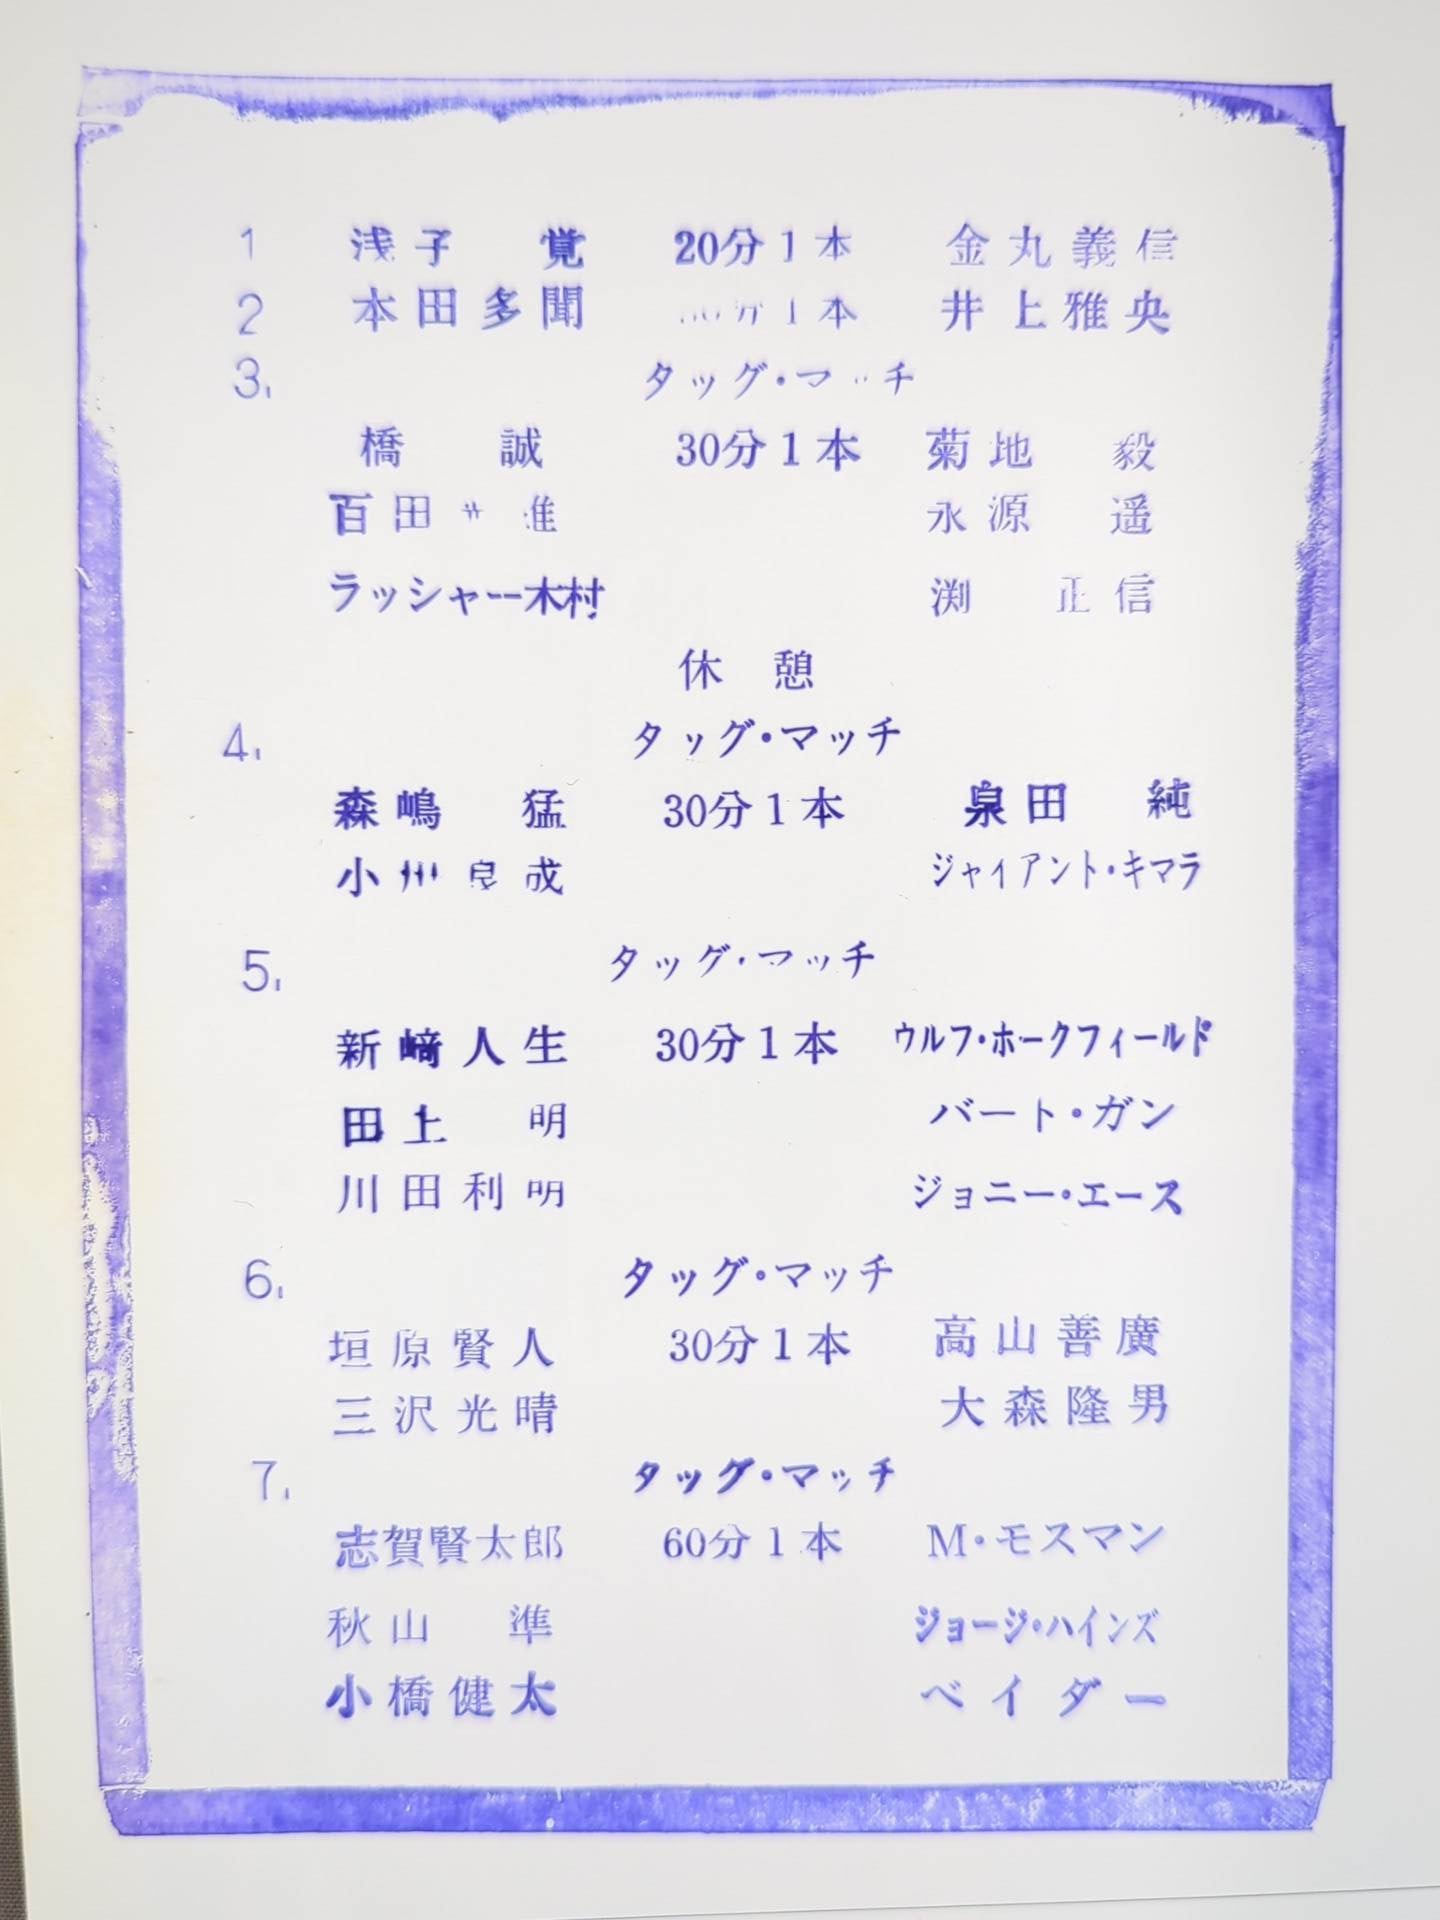 1 浅子 覚 20分1本 金丸義信
2 本田多聞 分1本 井上雅央
3. タッグ・マッチ
橋 誠 30分1本 菊地 毅
百田 永源 遥
ラッシャー木村 渕 正信
休憩
4. タッグ・マッチ
森嶋 猛 30分1本 泉田 純
小川良成 ジャイアント・キマラ
5. タッグ・マッチ
新﨑人生 30分1本 ウルフ・ホークフィールド
田上 明 バート・ガン
川田利明 ジョニー・エース
6. タッグ・マッチ
垣原賢人 30分1本 高山善廣
三沢光晴 大森隆男
7. タッグ・マッチ
志賀賢太郎 60分1本 M・モスマン
秋山 準 ジョージ・ハインズ
小橋健太 ベイダー